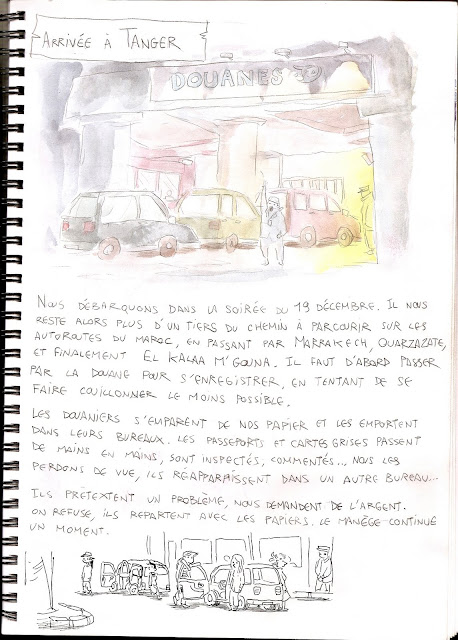 ARRIVÉE À TANGER
DOUANES
NOUS DÉBARQUONS DANS LA SOIRÉE DU 19 DÉCEMBRE. IL NOUS
RESTE ALORS PLUS D'UN TIERS DU CHEMIN À PARCOURIR SUR LES
AUTOROUTES DU MAROC, EN PASSANT PAR MARRAKECH, OUARZAZATE,
ET FINALEMENT EL KALAA M'GOUNA. IL FAUT D'ABORD PASSER
PAR LA DOUANE POUR S'ENREGISTRER, EN TENTANT DE SE
FAIRE COUILLONNER LE MOINS POSSIBLE.
LES DOUANIERS S'EMPARENT DE NOS PAPIER ET LES EMPORTENT
DANS LEURS BUREAUX. LES PASSEPORTS ET CARTES GRISES PASSENT
DE MAINS EN MAINS, SONT INSPECTÉS, COMMENTÉS... NOUS LES
PERDONS DE VUE, ILS RÉAPPARAISSENT DANS UN AUTRE BUREAU...
ILS PRÉTEXTENT UN PROBLÈME, NOUS DEMANDENT DE L'ARGENT.
ON REFUSE, ILS REPARTENT AVEC LES PAPIERS. LE MANÈGE CONTINUE
UN MOMENT.